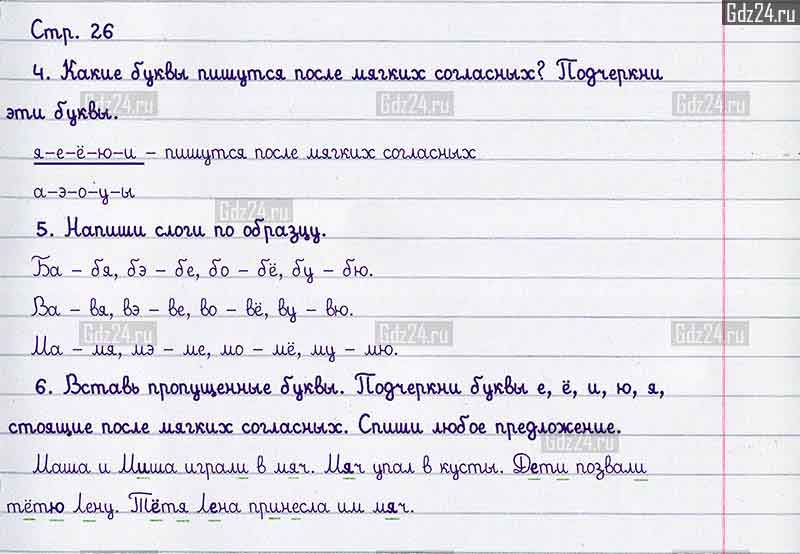 Gdz24.ru
Стр. 26
4. Какие буквы пишутся после мягких согласных? Подчеркни
Gdz24.ru Gdz24.ru Gdz24.ru
эти буквы.
я-е-ё-ю-и – пишутся после мягких согласных
а-э-о-у-ы
Gdz24.ru
5. Напиши слоги по образцу.
Ба – бя, бэ – бе, бо – бё, бу – бю.
Ва – вя, вэ – ве, во – вё, ву – вю.
Gdz24.ru Gdz24.ru Gdz24.ru
Ма – мя, мэ – ме, мо – мё, му – мю.
6. Вставь пропущенные буквы. Подчеркни буквы е, ё, и, ю, я,
стоящие после мягких согласных. Спиши любое предложение.
Gdz24.ru
Маша и Миша играли в мяч. Мяч упал в кусты. Дети позвали
тётю Лену. Тётя Лена принесла им мяч.